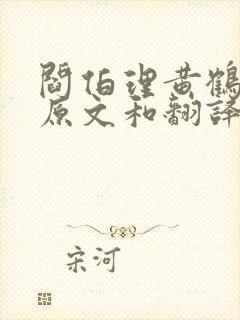 閻伯理黄鹤
原文和翻譯
宋河